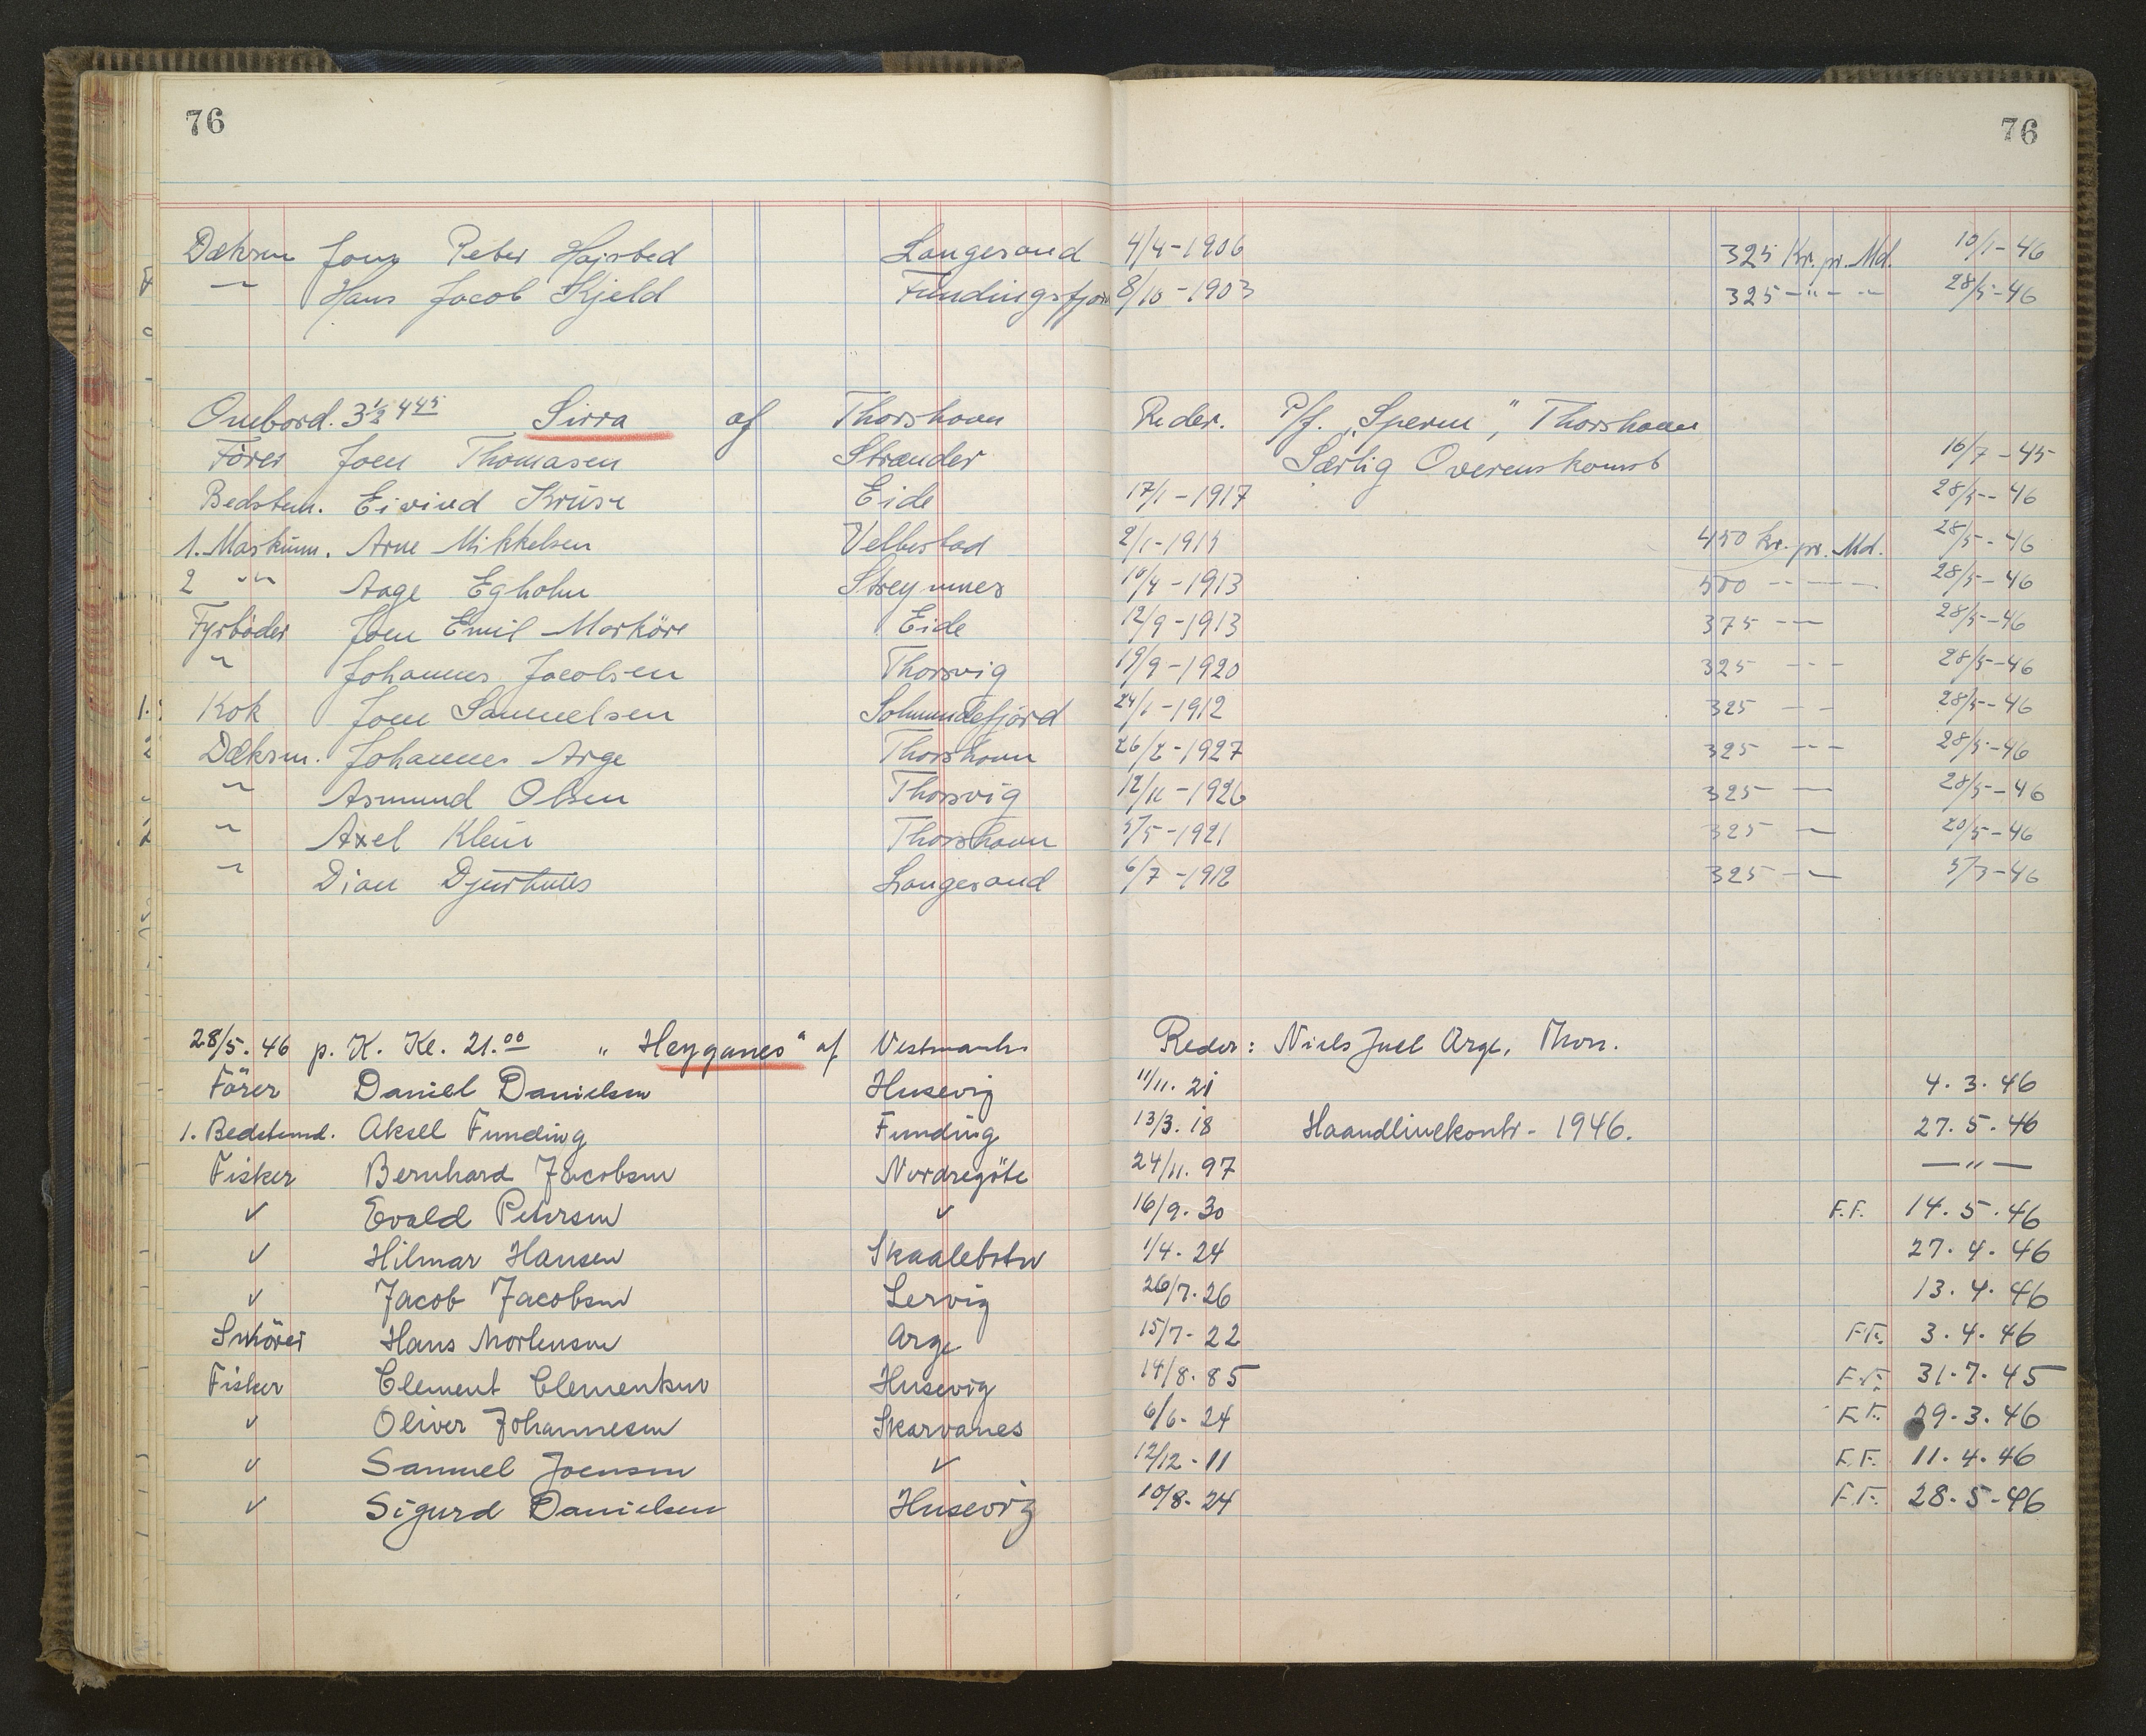 76 76
Dæksm Jens Peter Højsted Langesand 4/4-1906 325 Kr. pr. Md. 10/1-46
" Hans Jacob Kjeld Fundingsfjord 8/10-1903 325 -"- - 28/5-46
Ombord. Sirra af Thorshavn Reder. P/f. "Sperm", Thorshavn
Förer Joen Thomasen Strænder Særlig Overenskomst 16/7-45
Bedstem. Eivind Kruse Eide 17/1-1917 28/5-46
1. Maskinm. Arne Mikkelsen Velbestad 2/1-1915 450 kr. pr. Md. 28/5-46
2 -"- Aage Egholm Streymnes 10/4-1913 500 - - 28/5-46
Fyrböder Joen Emil Morköre Eide 12/9-1913 375 - - 28/5-46
" Johannes Jacobsen Thorsvig 19/9-1920 325 - - - 28/5-46
Kok Joen Samuelsen Solmundefjörd 24/1-1912 325 - - 28/5-46
Dæksm. Johannes Arge Thorshavn 26/2-1927 325 - - - 28/5-46
" Asmund Olsen Thorsvig 12/11-1926 325 - 28/5-46
" Axel Klein Thorshavn 5/5-1921 325 - 20/5-46
" Dian Djurhuus Langesand 6/7-1912 325 - - 5/3-46
28/5. 46 p. K. Kl. 21.00 "Heyganes" af Vestmanh. Reder: Niels Juel Arge, Thors.
Förer Daniel Danielsen Husevig 11/11. 21 4. 3. 46
1. Bedstemd. Aksel Funding Funding 13/3. 18 Haandlinekontr - 1946. 27. 5. 46
Fisker Bernhard Jacobsen Nordregöte 24/11. 97 - " -
✓ Evald Petersen ✓ 16/9. 30 F.F. 14. 5. 46
✓ Hilmar Hansen Skaalebotn 1/4. 24 27. 4. 46
✓ Jacob Jacobsen Lervig 26/7. 26 13. 4. 46
Smörer Hans Mortensen Arge 15/7. 22 F.F. 3. 4. 46
Fisker Clement Clementsen Husevig 14/8. 85 F.F. 31. 7. 45
✓ Oliver Johannesen Skarvanes 6/6. 24 F.F. 29. 3. 46
✓ Samuel Joensen ✓ 12/12. 11 F.F. 11. 4. 46
✓ Sigurd Danielsen Husevig 10/8. 24 F.F. 28. 5. 46